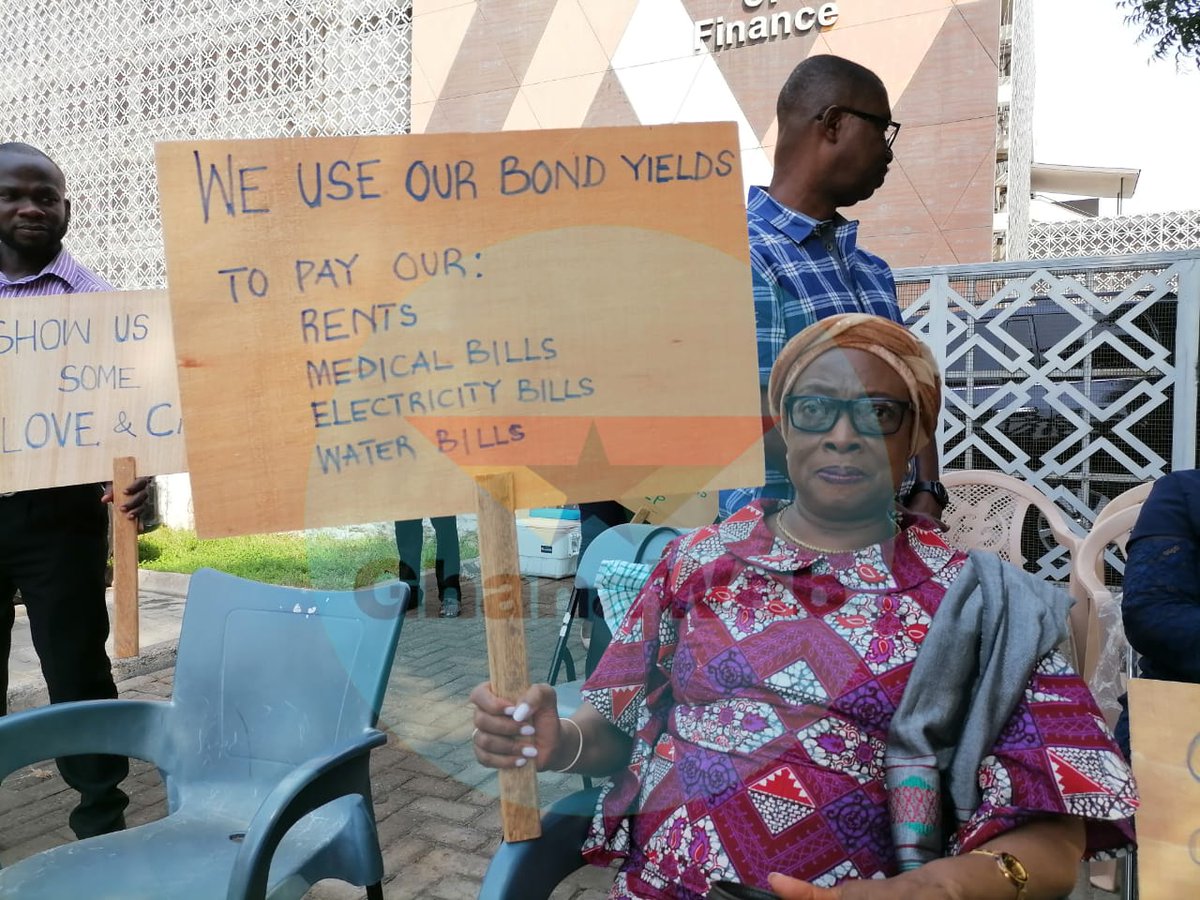 Finance
WE USE OUR BOND YIELDS
TO PAY OUR:
RENTS
MEDICAL BILLS
ELECTRICITY BILLS
WATER BILLS
SHOW US
SOME
LOVE &
GhanaWeb